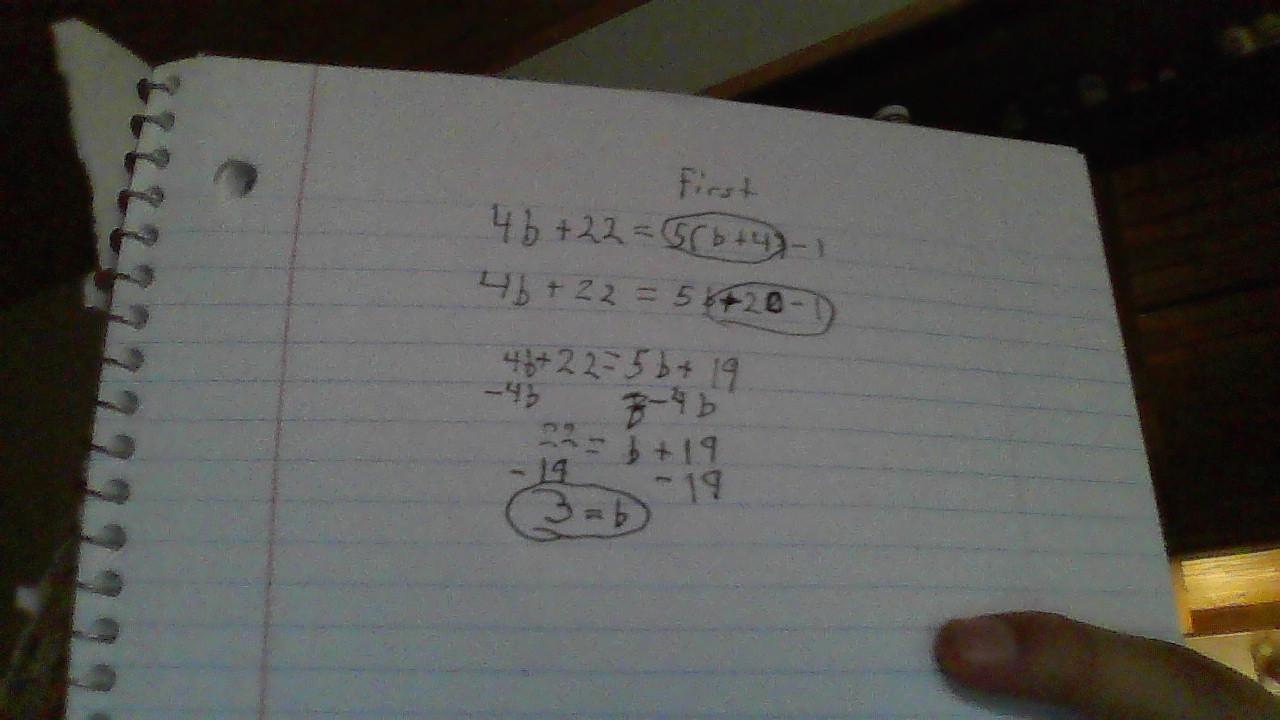 First
4b + 22 = 5(b+4) - 1
4b + 22 = 5b + 20 - 1
4b + 22 = 5b + 19
-4b -4b
22 = b + 19
- 19 - 19
3 = b